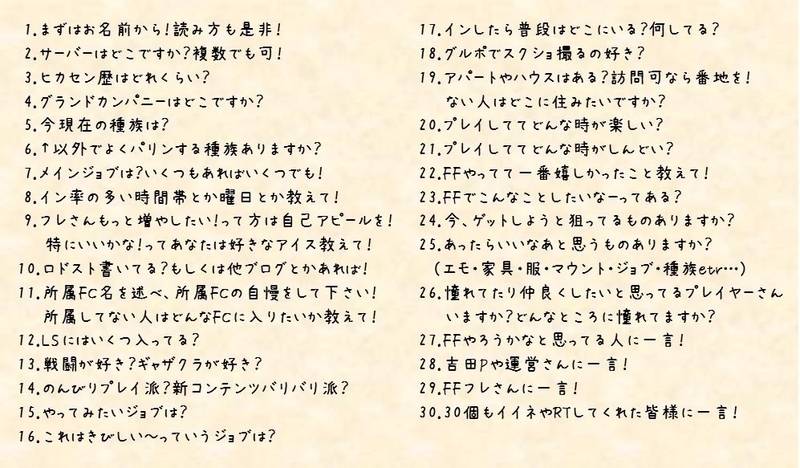 1.まずはお名前から!読み方も是非!
2.サーバーはどこですか?複数でも可!
3.ヒカセン歴はどれくらい?
4.グランドカンパニーはどこですか?
5.今現在の種族は?
6.↑以外でよくパリンする種族ありますか?
7.メインジョブは?いくつもあればいくつでも!
8.イン率の多い時間帯とか曜日とか教えて!
9.フレさんもっと増やしたい!って方は自己アピールを!
特にいいかな!ってあなたは好きなアイス教えて!
10.ロドスト書いてる?もしくは他ブログとかあれば!
11.所属FC名を述べ、所属FCの自慢をして下さい!
所属してない人はどんなFCに入りたいか教えて!
12.LSにはいくつ入ってる?
13.戦闘が好き?ギャザクラが好き?
14.のんびりプレイ派?新コンテンツバリバリ派?
15.やってみたいジョブは?
16.これはきびしい〜っていうジョブは?
17.インしたら普段はどこにいる?何してる?
18.グルポでスクショ撮るの好き?
19.アパートやハウスはある?訪問可なら番地を!
ない人はどこに住みたいですか?
20.プレイしててどんな時が楽しい?
21.プレイしててどんな時がしんどい?
22.FFやってて一番嬉しかったこと教えて!
23.FFでこんなことしたいなーってある?
24.今、ゲットしようと狙ってるものありますか?
25.あったらいいなあと思うものありますか?
(エモ・家具・服・マウント・ジョブ・種族etr…)
26.憧れてたり仲良くしたいと思ってるプレイヤーさん
いますか?どんなところに憧れてますか?
27.FFやろうかなと思ってる人に一言!
28.吉田Pや運営さんに一言!
29.FFフレさんに一言!
30.30個もイイネやRTしてくれた皆様に一言!